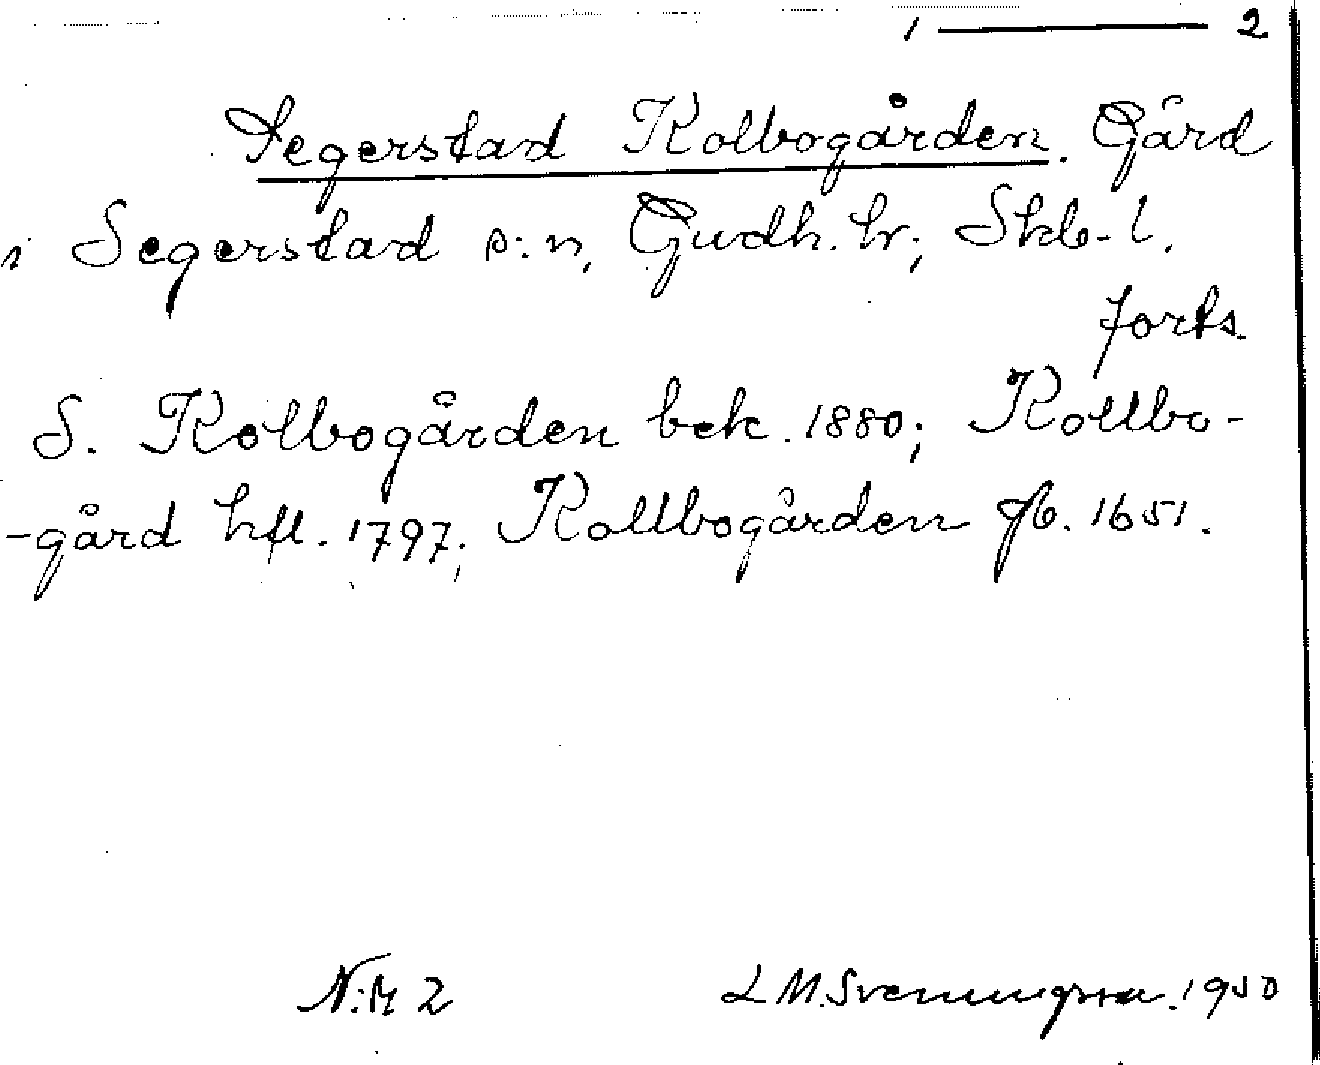 1 — 2
Segerstad Kolbogården. Gård
i Segerstad s:n, Gudh. hr; Skb-l.
forts.
S. Kolbogården bek. 1880; Kollbo-
-gård hfl. 1797; Kollbogården jb. 1651.
N:r 2 L M. Svenningsson. 1950